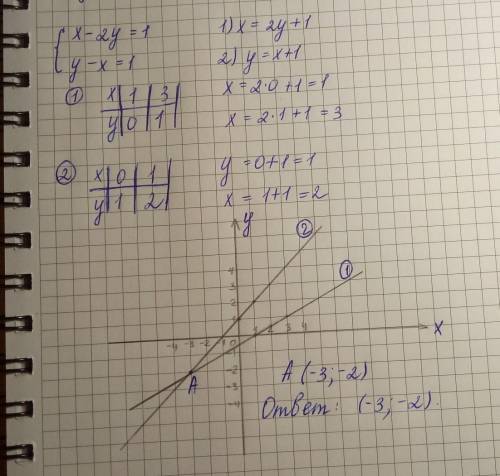 { x-2y=1    1) x=2y+1
y-x=1    2) y=x+1
① x | 1 | 3    x=2·0+1=1
y | 0 | 1    x=2·1+1=3
② x | 0 | 1    y=0+1=1
y | 1 | 2    x=1+1=2
y
②
①
4
3
2
1
-4 -3 -2 -1 0 1 2 3 4 x
-1
-2
-3
-4
A
A (-3;-2)
Ответ: (-3;-2).